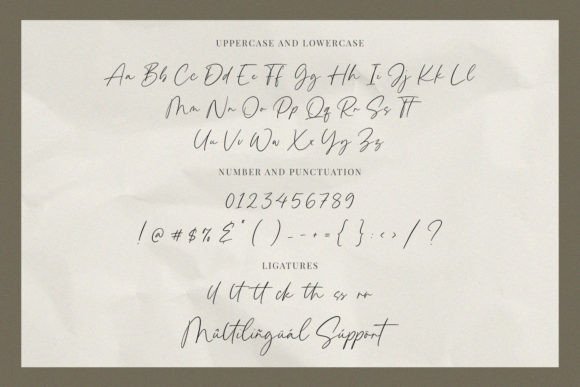 UPPERCASE AND LOWERCASE
Aa Bb Cc Dd Ee Ff Gg Hh Ii Jj Kk Ll
Mm Nn Oo Pp Qq Rr Ss Tt
Uu Vv Ww Xx Yy Zz
NUMBER AND PUNCTUATION
0123456789
! @ # $ % & * ( ) _ - + = { } : < > / ?
LIGATURES
ll lt tt ck th ss rr
Mûltilìñgüál Súppört